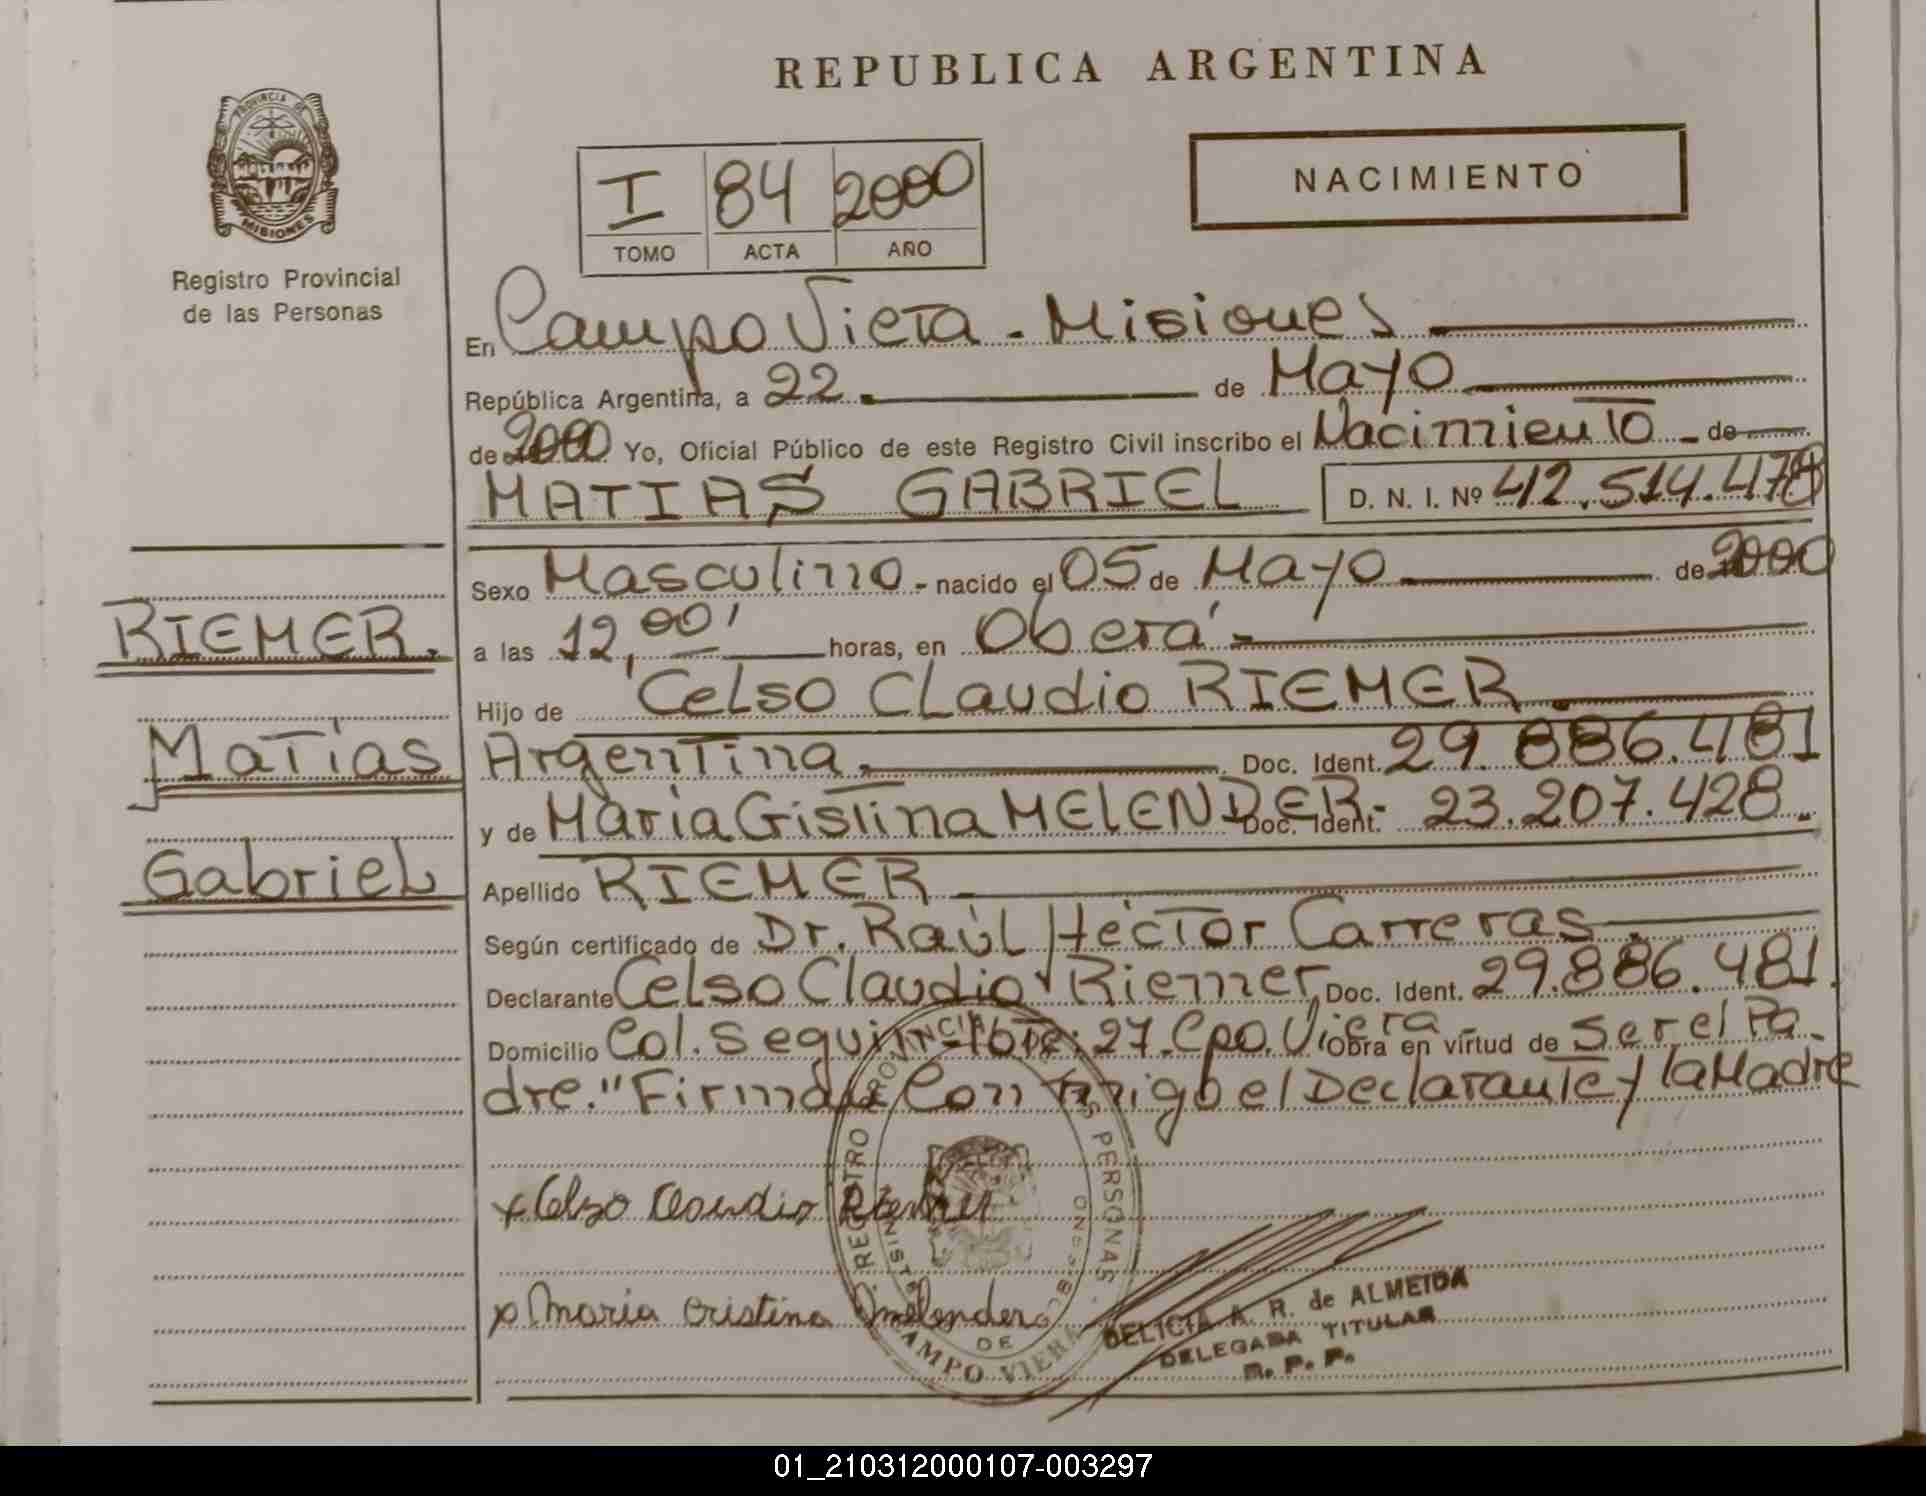 REPUBLICA ARGENTINA
PROVINCIA DE
MISIONES
Registro Provincial
de las Personas
I 84 2000
TOMO ACTA AÑO
NACIMIENTO
En Campo Viera - Misiones
República Argentina, a 22 de Mayo
de 2000 Yo, Oficial Público de este Registro Civil inscribo el Nacimiento - de
MATIAS GABRIEL D. N. I. Nº 42.514.478
Sexo Masculino - nacido el 05 de Mayo de 2000
RIEMER.
a las 12,00' horas, en Oberá -
Hijo de Celso Claudio RIEMER.
Matias
Argentina. Doc. Ident. 29.886.481
y de Maria Cristina MELENDER - Doc. Ident. 23.207.428
Gabriel
Apellido RIEMER -
Según certificado de Dr. Raúl Héctor Carreras.
Declarante Celso Claudio Riemer, Doc. Ident. 29.886.481.
Domicilio Col. Seguin - lote: 27. Cpo. Viera Obra en virtud de Ser el Pa-
dre." Firman Conmigo el Declarante y la Madre
x Celso Claudio Riemer
x Maria Cristina Melender
REGISTRO PROVINCIAL PERSONAS
CAMPO VIERA
DE
DELICIA A. R. de ALMEIDA
DELEGADA TITULAR
R. P. P.
01_210312000107-003297